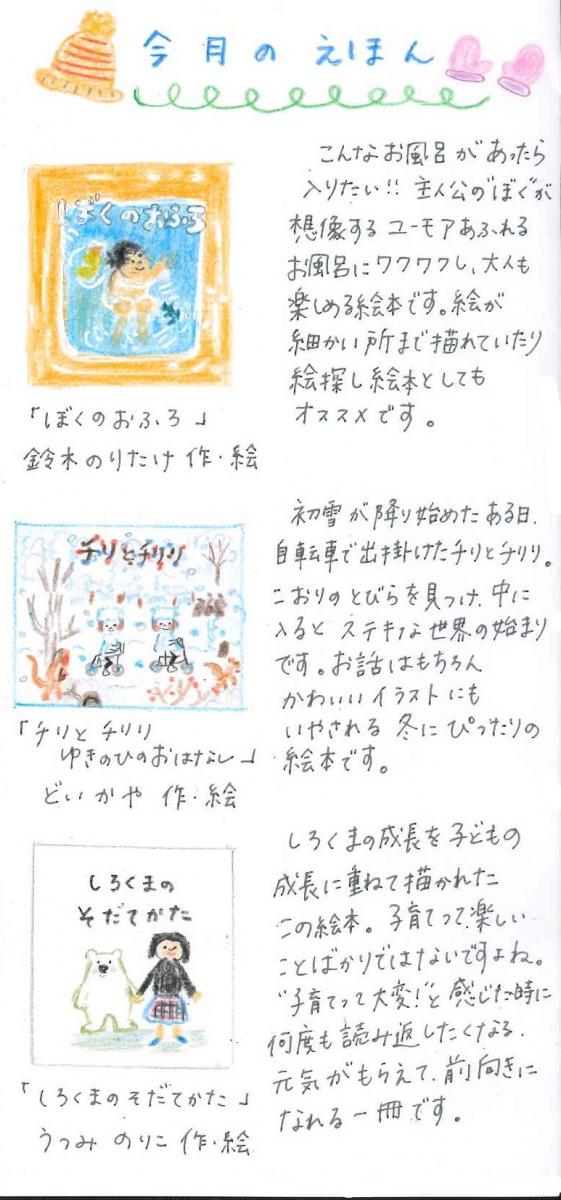 今月のえほん
ぼくのおふろ
「ぼくのおふろ」
鈴木のりたけ 作・絵
こんなお風呂があったら
入りたい!! 主人公の"ぼく"が
想像するユーモアあふれる
お風呂にワクワクし、大人も
楽しめる絵本です。絵が
細かい所まで描れていたり
絵探し絵本としても
オススメです。
チリとチリリ
「チリとチリリ
ゆきのひのおはなし」
どいかや 作・絵
初雪が降り始めたある日、
自転車で出掛けたチリとチリリ。
こおりのとびらを見つけ、中に
入るとステキな世界の始まり
です。お話はもちろん
かわいいイラストにも
いやされる冬にぴったりの
絵本です。
しろくまの
そだてかた
「しろくまのそだてかた」
うつみ のりこ 作・絵
しろくまの成長を子どもの
成長に重ねて描かれた
この絵本。子育てって楽しい
ことばかりではないですよね。
"子育てって大変!"と感じた時に
何度も読み返したくなる、
元気がもらえて、前向きに
なれる一冊です。